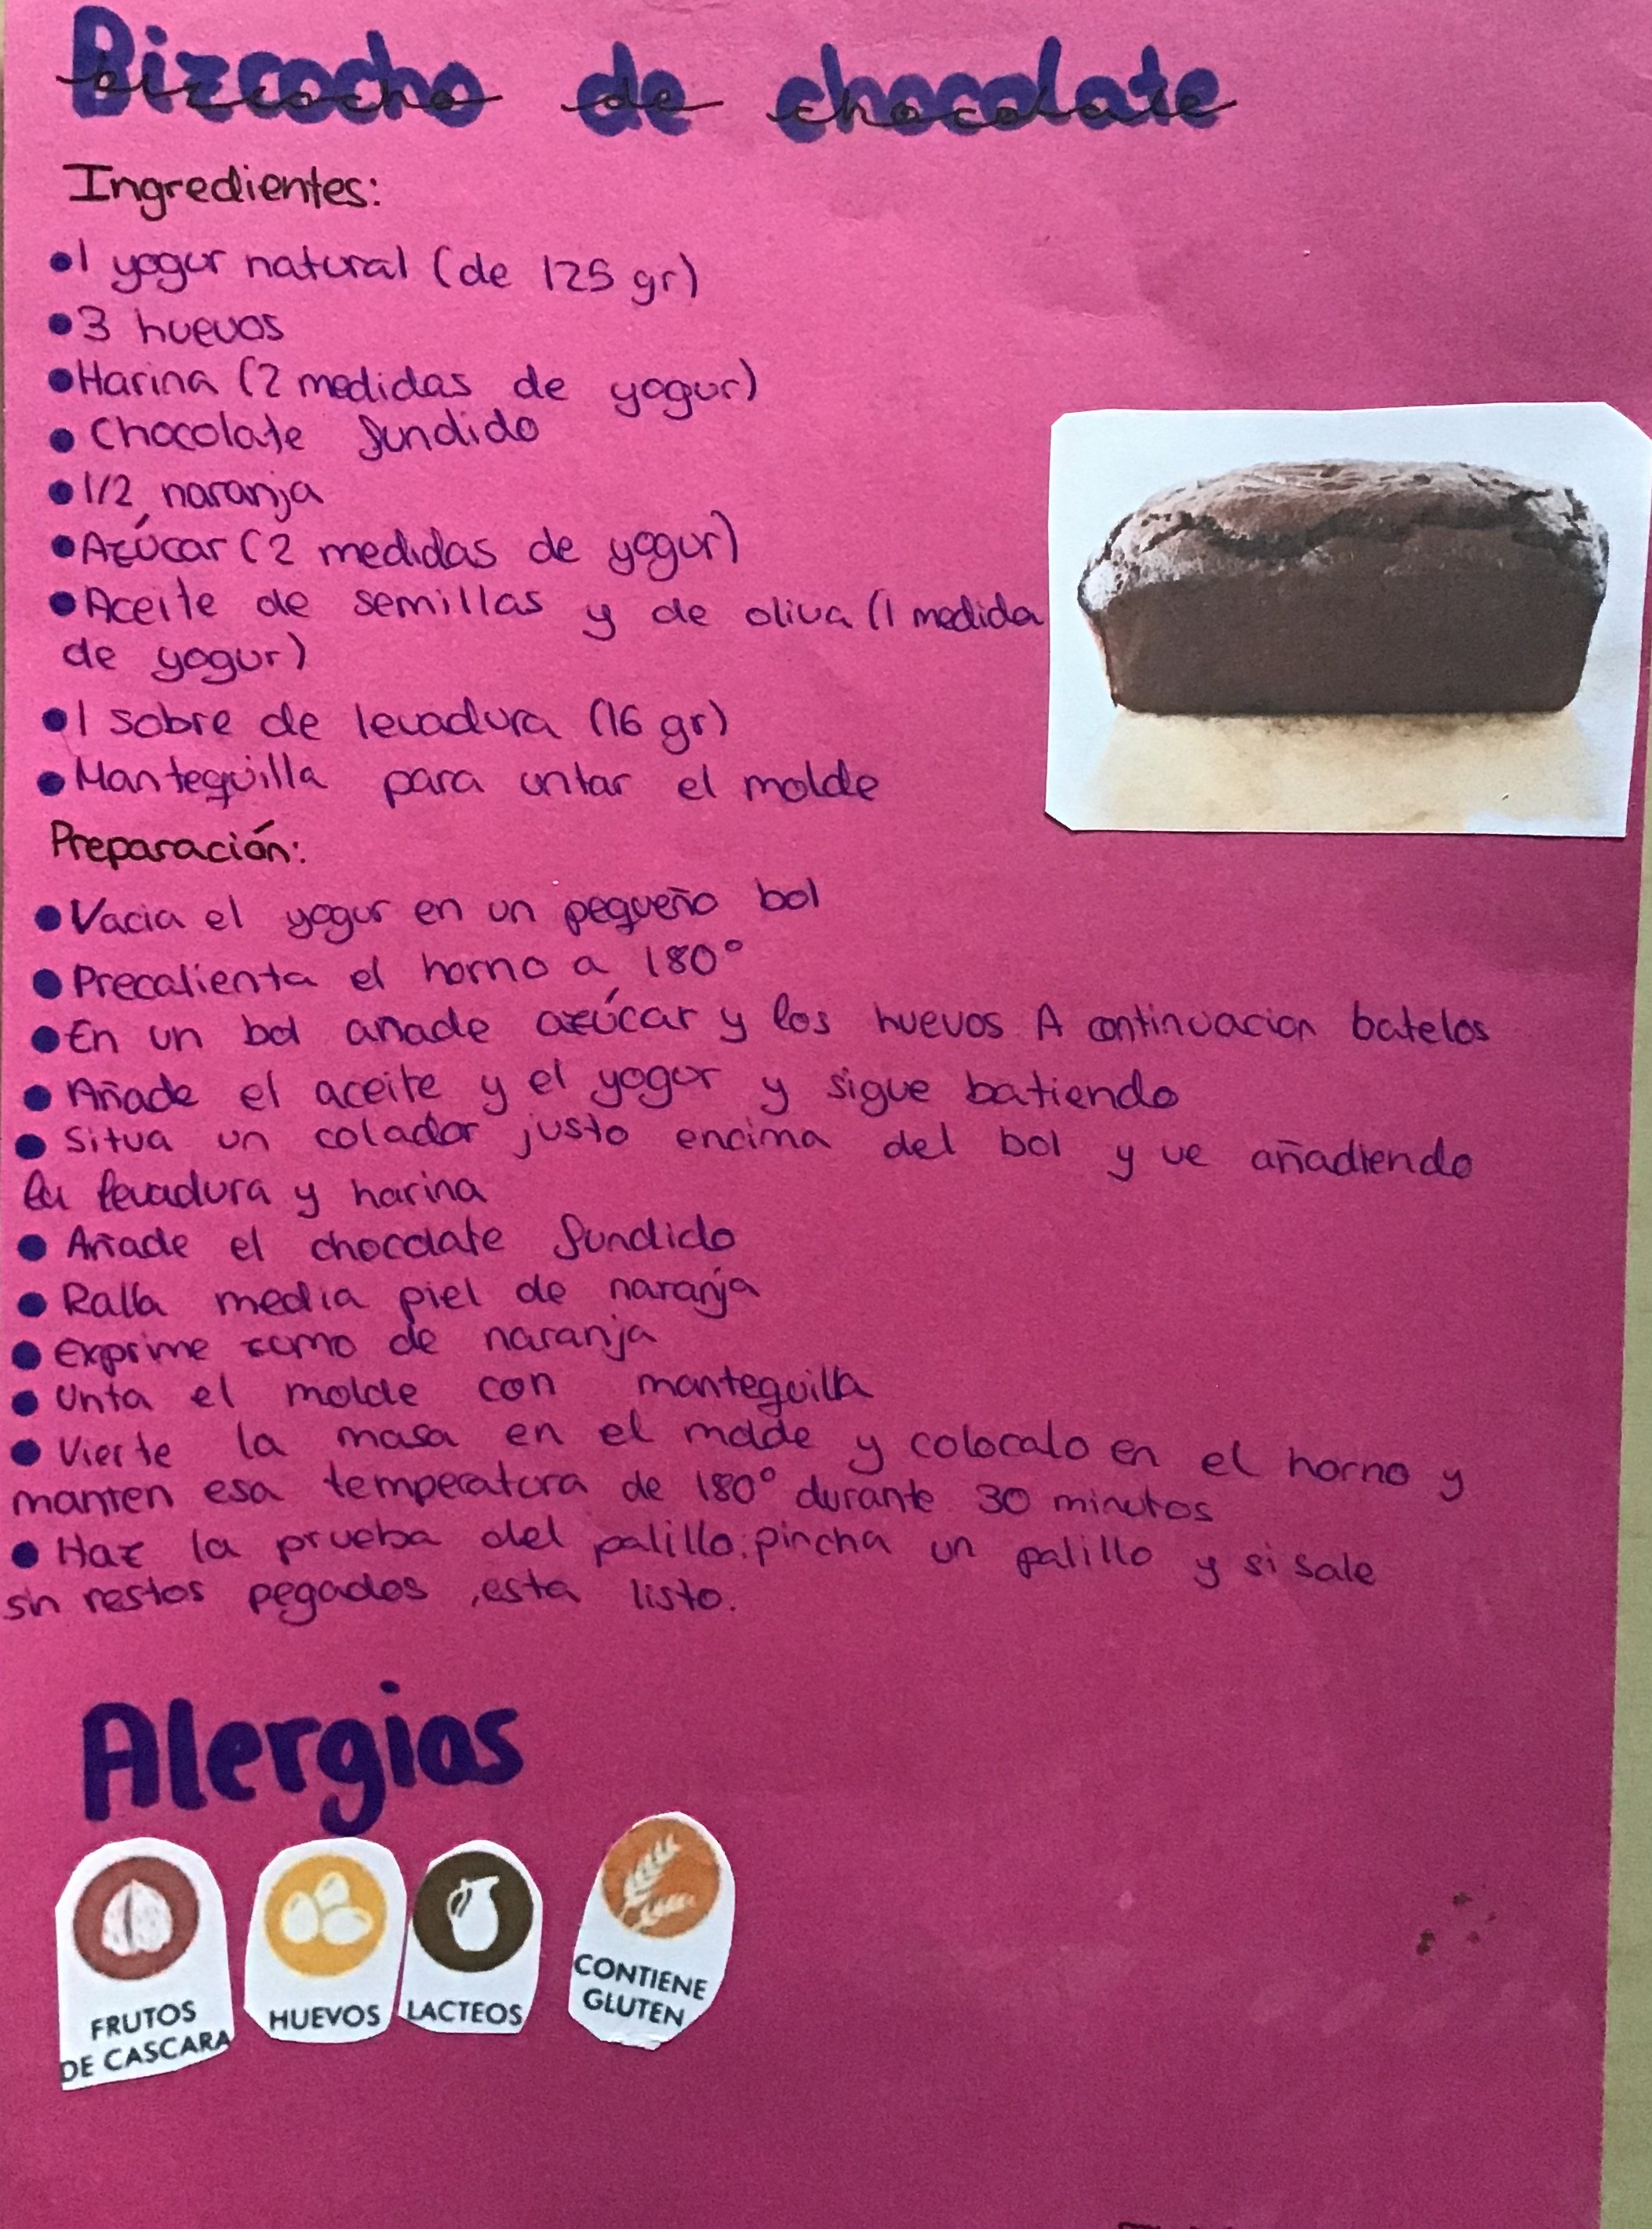 Bizcocho de chocolate
Ingredientes:
•1 yogur natural (de 125 gr)
•3 huevos
•Harina (2 medidas de yogur)
• Chocolate fundido
•1/2 naranja
•Azúcar (2 medidas de yogur)
•Aceite de semillas y de oliva (1 medida
de yogur)
•1 sobre de levadura (16 gr)
•Mantequilla para untar el molde
Preparación:
•Vacia el yogur en un pequeño bol
•Precalienta el horno a 180°
•En un bol añade azúcar y los huevos A continuacion batelos
• Añade el aceite y el yogur y sigue batiendo
• Situa un colador justo encima del bol y ve añadiendo
la levadura y harina
• Añade el chocolate fundido
• Ralla media piel de naranja
• Exprime zumo de naranja
• Unta el molde con mantequilla
• Vierte la masa en el molde y colocalo en el horno y
manten esa temperatura de 180° durante 30 minutos
• Haz la prueba del palillo: pincha un palillo y si sale
sin restos pegados, esta listo.
Alergias
FRUTOS
DE CASCARA
HUEVOS
LACTEOS
CONTIENE
GLUTEN